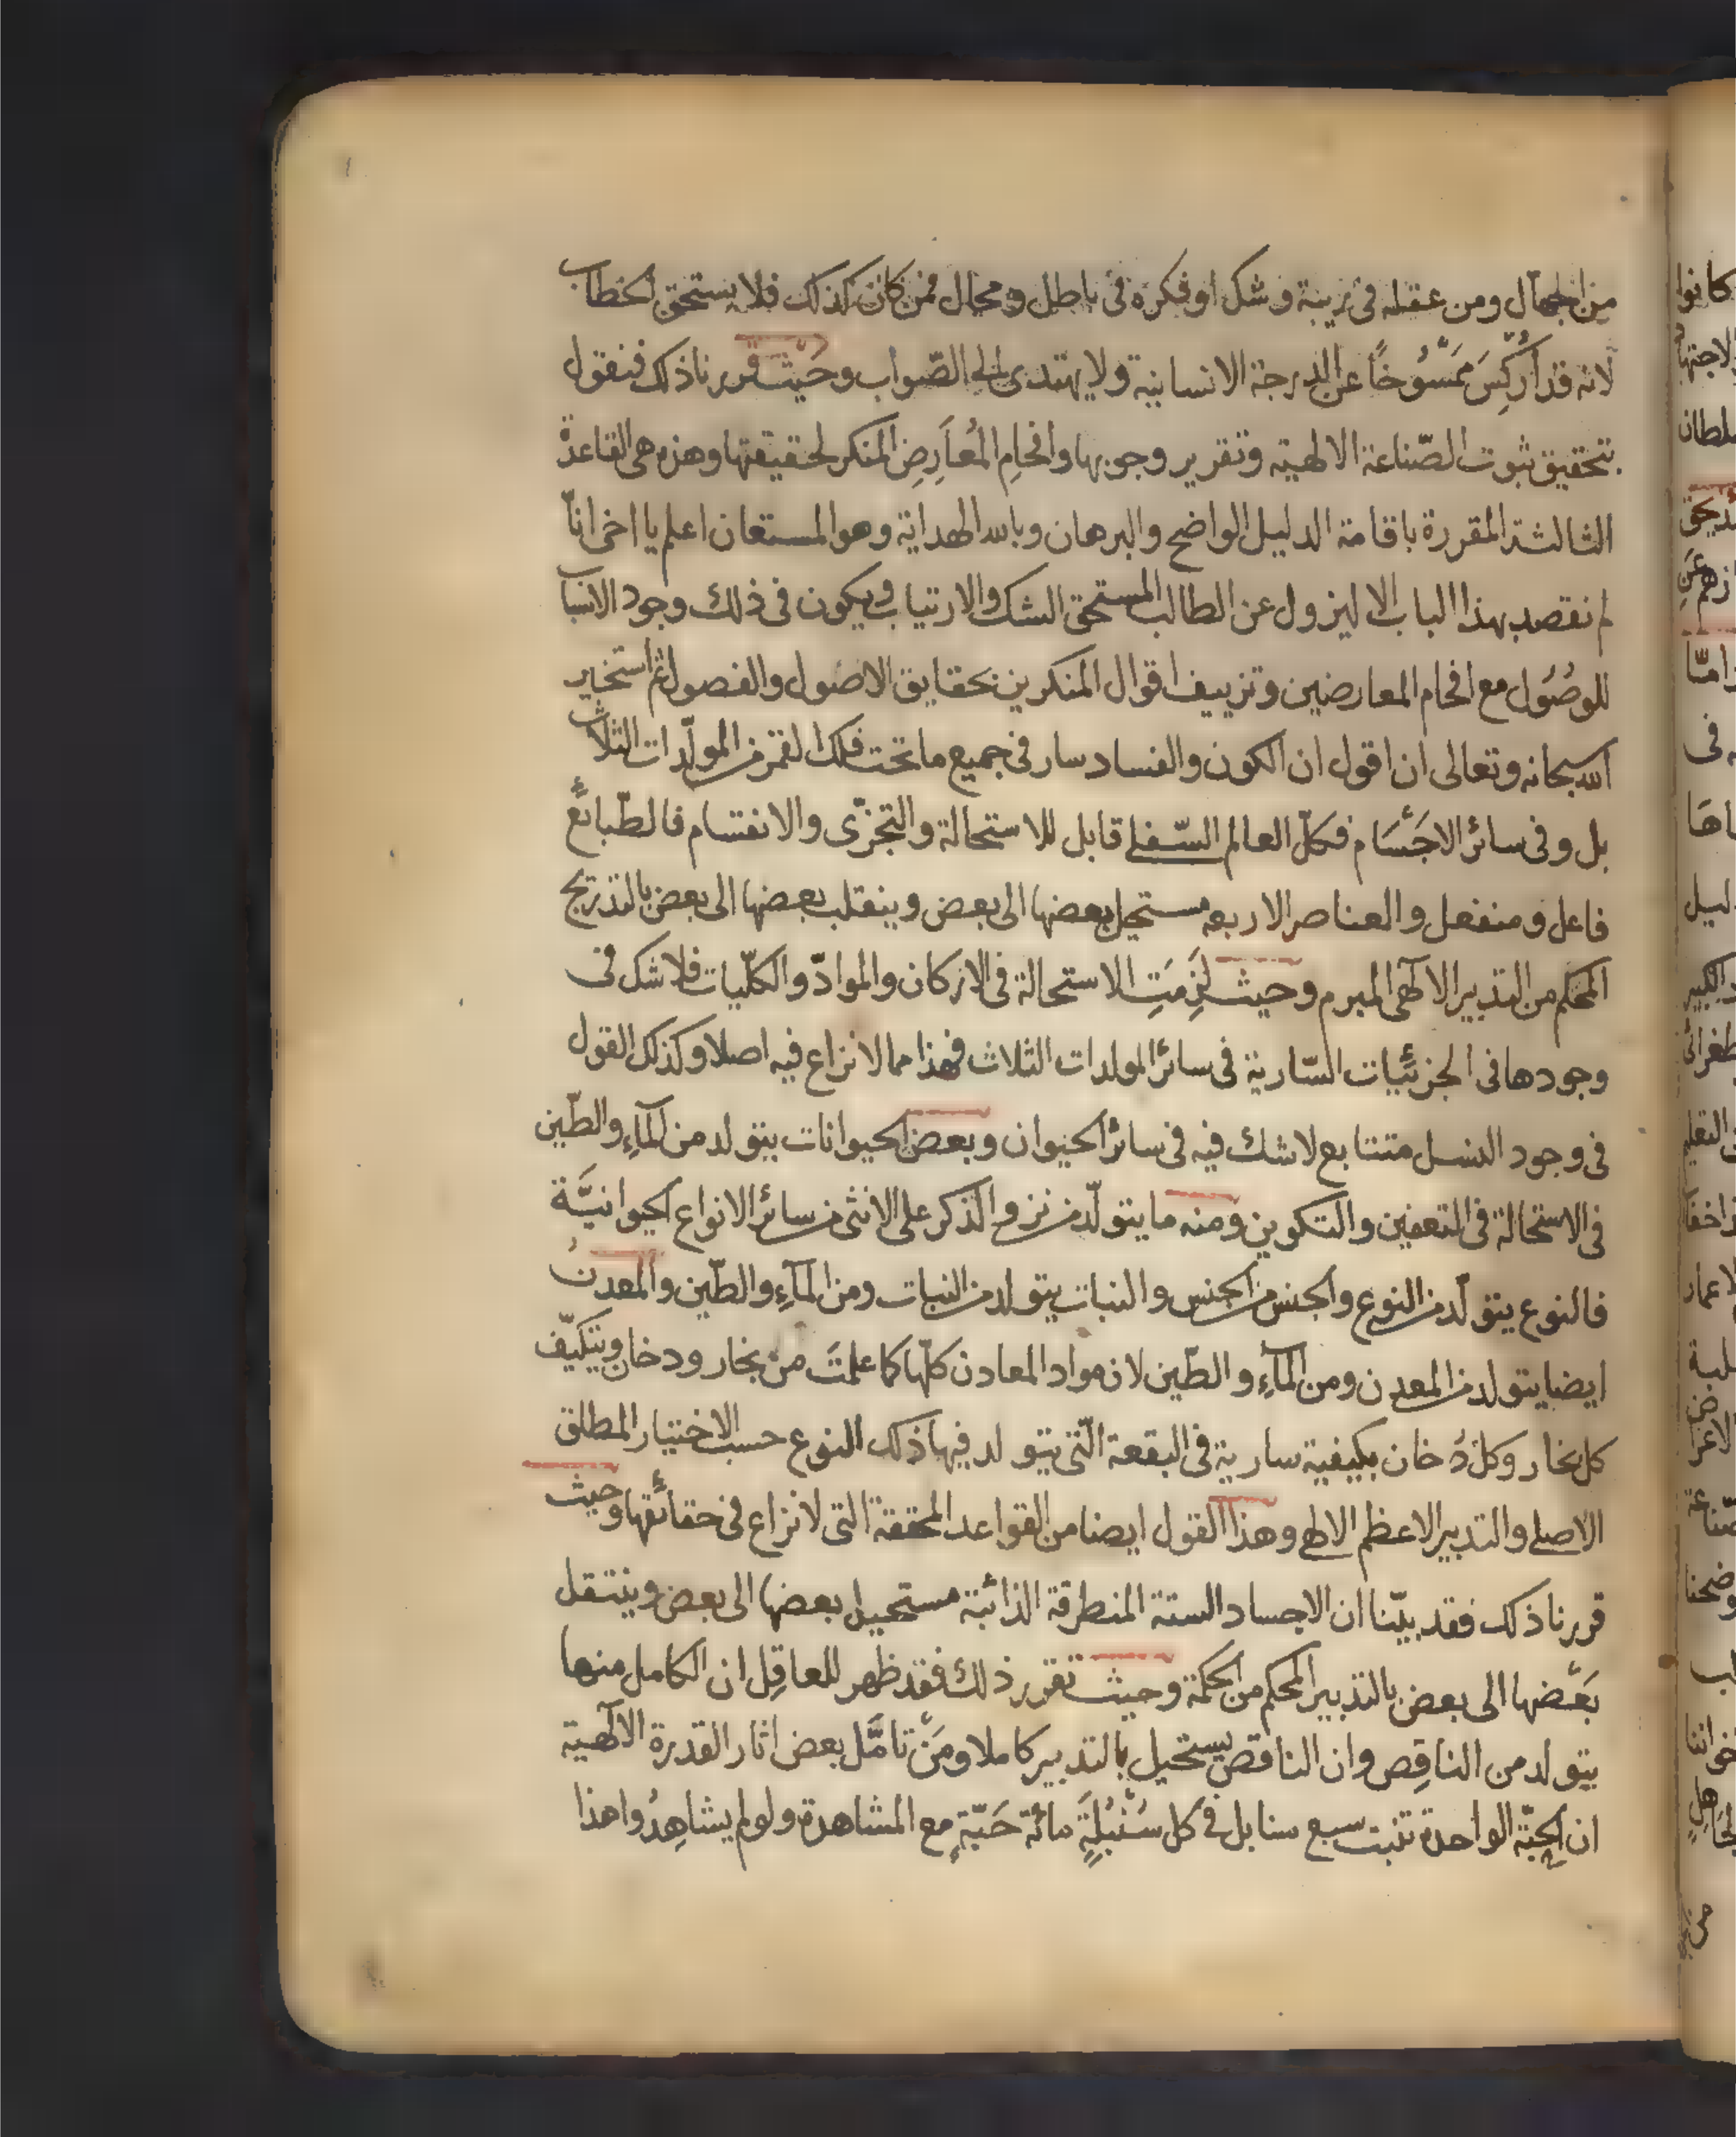 من الجهال ومن عقله فى ريبة وشك او فكره فى باطل ومحال فمن كان كذلك فلا يستحق الخطاب
لانه قد اُرْكِسَ مَمْسُوخًا عن الدرجة الانسانية ولا يهتدى الى الصّواب وحَيْث قررنا ذلك فنقول
بتحقيق ثبوت الصّناعة الالهية وتقرير وجوبها وافحامِ المُعَارِضِ المنكر لحقيقتها وهذه هى القاعدة
الثالثة المقررة باقامة الدليل الواضح والبرهان وبالله الهداية وهو المستعان اعلم يا اخى انّا
لم نقصد بهذا الباب الا ليزول عن الطالب المستحق الشك والارتياب ويكون فى ذلك وجود الاسباب
للوصُول مع افحام المعارضين وتزييف اقوال المنكرين بحقايق الاصُول والفصول ثم استخير
الله سبحانه وتعالى ان اقول ان الكون والفساد سار فى جميع ما تحت فلك القمر من المولّدات الثلاث
بل وفى سائر الاجْسَام فكلّ العالم السّفلى قابل للاستحالة والتجزّى والانقسام فالطّبائع
فاعل ومنفعل والعناصر الاربعه مستحيل بعضها الى بعض وينقلب بعضها الى بعض بالتدريج
المحكم من التدبير الالٓهى المبرم وحيث لَزِمَتِ الاستحالة فى الاركان والموادّ والكلّيات فلا شك فى
وجودها فى الجزئيّات السّارية فى سائر المولدات الثلاث فهذا مما لا نزاع فيه اصلا وكذلك القول
فى وجود النسل متتابع لا شك فيه فى سائر الحيوان وبعض الحيوانات يتولد من المآءِ والطّين
فى الاستحالة فى التعفين والتكوين ومنه ما يتولّد من نزو الذكر على الانثى من سائر الانواع الحيوانيَّة
فالنوع يتولّد من النوع والجنس من الجنس والنبات يتولد من النبات ومن المآءِ والطّين والمعدنُ
ايضا يتولد من المعدن ومن المآءِ والطّين لان مواد المعادن كلّها كما علمتَ من بخار ودخان ويتكيّف
كل بخار وكل دُخان بكيفية سارية فى البقعة الّتى يتولد فيها ذلك النوع حسب الاختيار المطلق
الاصلى والتدبير الاعظم الالهى وهذا القول ايضا من القواعد المحققة التى لا نزاع فى حقائقها وحيث
قررنا ذلك فقد بيّنا ان الاجساد الستة المنطرقة الذائبة مستحيل بعضها الى بعض وينتقل
بَعْضها الى بعض بالتدبير المحكم من الحكمة وحيث تقرر ذلك فقد ظهر للعاقِل ان الكامل منها
يتولد من الناقِص وان الناقص يستحيل بالتدبير كاملا ومَنْ تامَّل بعض اثار القدرة الالٓهية
ان الحبّة الواحدة تنبت سبع سنابل فى كل سُنْبُلَةٍ مائة حَبّةٍ مع المشاهدة ولو لم يشاهِدُوا هذا